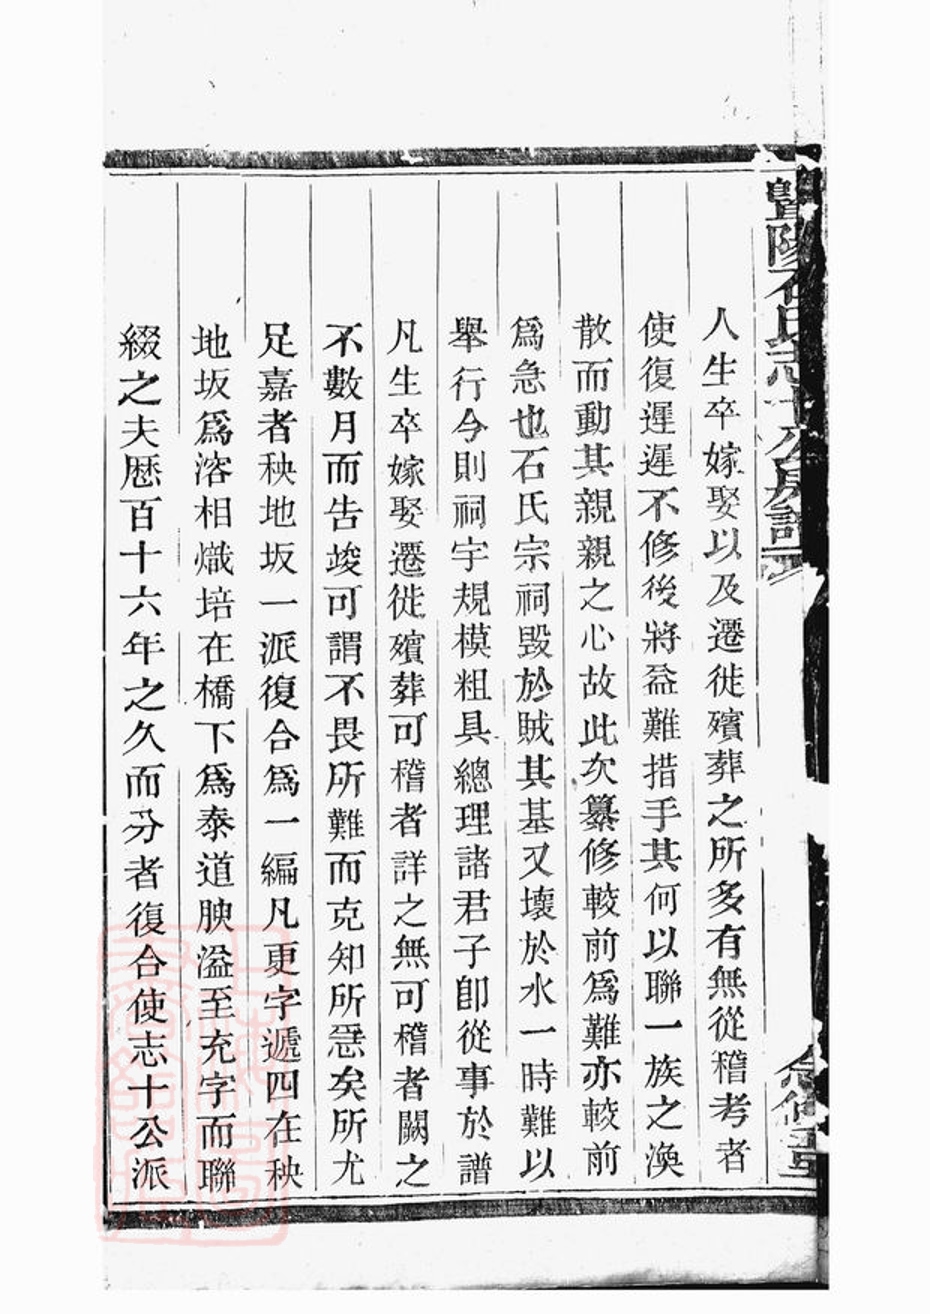 暨陽石氏志十公房譜
人生卒嫁娶以及遷徙殯葬之所多有無從稽考者
使復遲遲不修後將益難措手其何以聯一族之渙
散而動其親親之心故此次纂修較前爲難亦較前
爲急也石氏宗祠毀於賊其基又壞於水一時難以
舉行今則祠宇規模粗具總理諸君子卽從事於譜
凡生卒嫁娶遷徙殯葬可稽者詳之無可稽者闕之
不數月而告竣可謂不畏所難而克知所急矣所尤
足嘉者秧地坂一派復合爲一編凡更字遞四在秧
地坂爲溶相熾培在橋下爲泰道腴溢至充字而聯
綴之夫厯百十六年之久而分者復合使志十公派